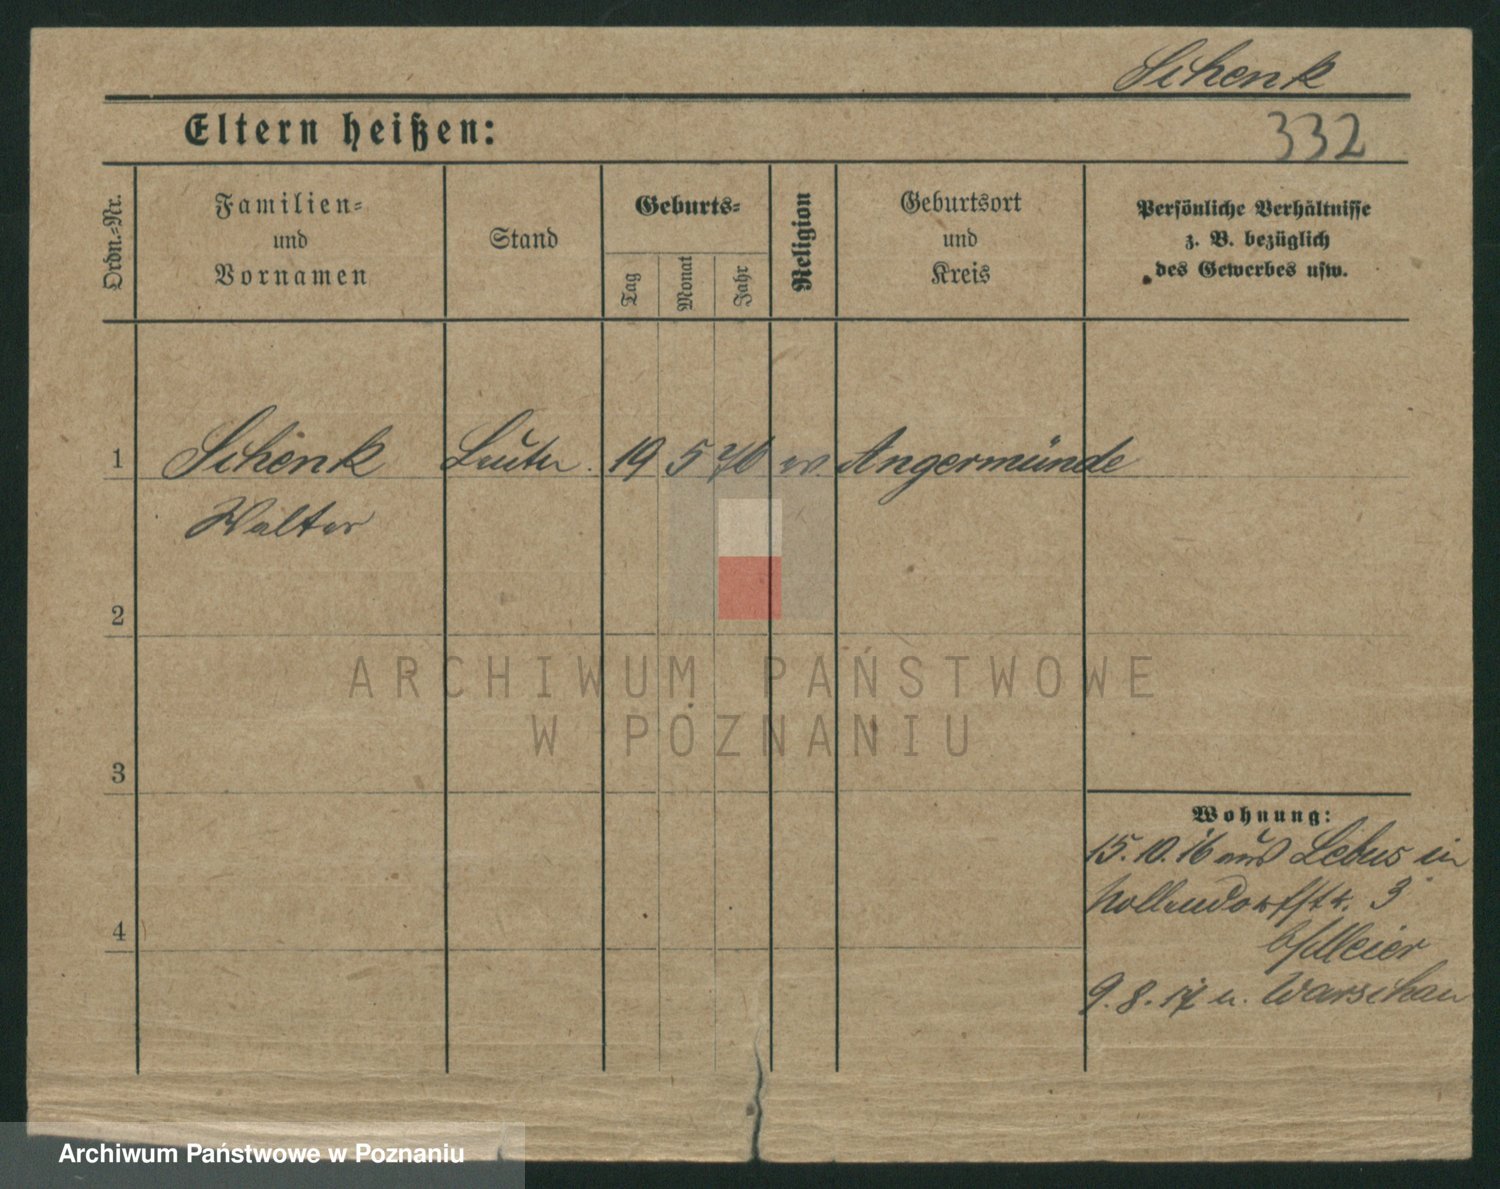 Schenk
Eltern heißen:
332
Ordn.-Nr.
Familien-
und
Vornamen
Stand
Geburts-
Tag
Monat
Jahr
Religion
Geburtsort
und
Kreis
Persönliche Verhältnisse
z. B. bezüglich
des Gewerbes usw.
1 Schenk 19 5 76 ev. Angermünde
Walter
2
ARCHIWUM PAŃSTWOWE
W POZNANIU
3
Wohnung:
15.10.16 aus Lebus in
Nollendorfstr. 3
b/Meier
4
9.8.17 n. Warschau
Archiwum Państwowe w Poznaniu